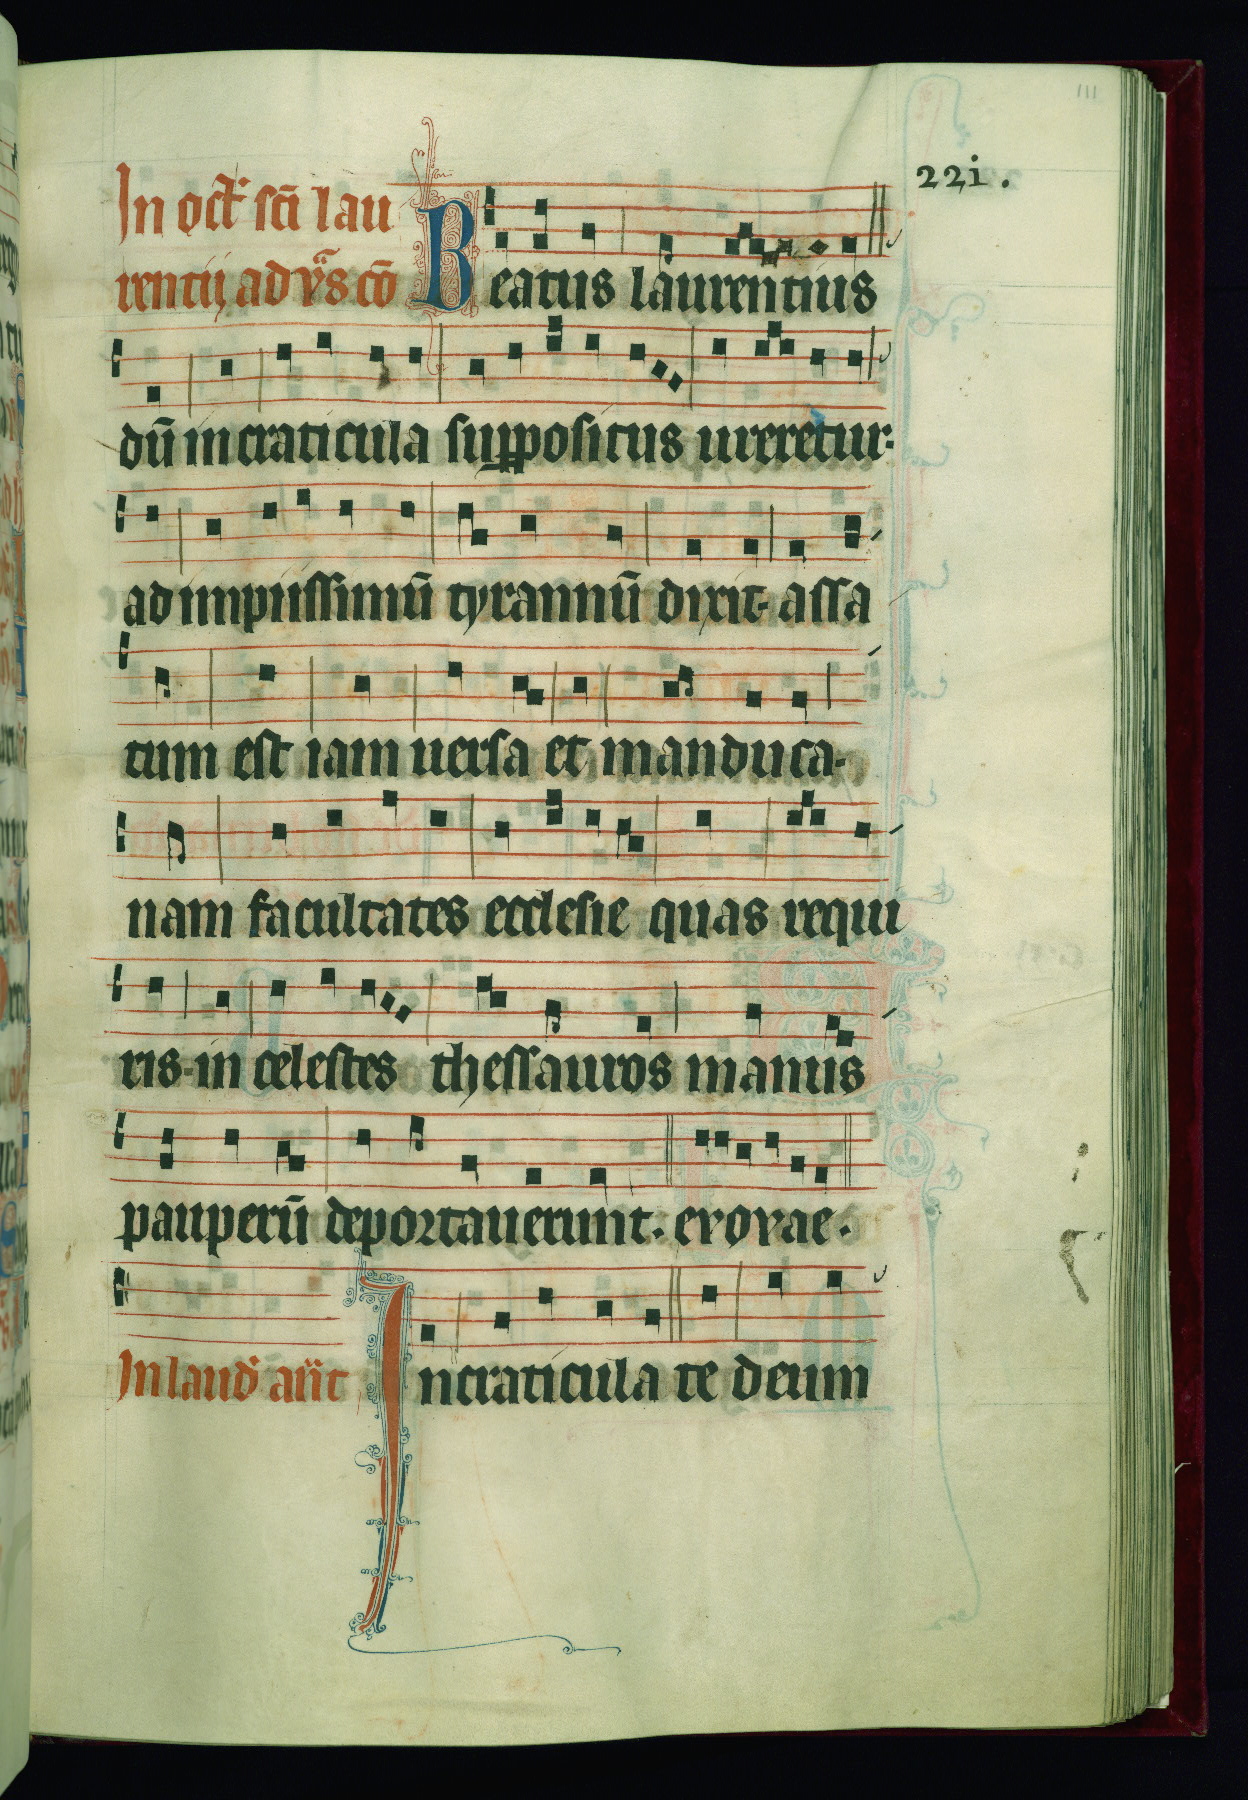 111
221.
In oct̄ sc̄i lau
rentij ad v̄s cō Beatus laurentius
dū in craticula suppositus ureretur.
ad impiissimū tyrannū dixit. assa
tum est iam uersa et manduca.
nam facultates ecclesie quas requi
ris. in celestes thessauros manus
pauperū deportauerunt. evovae.
In laud̄ an̄t In craticula te deum